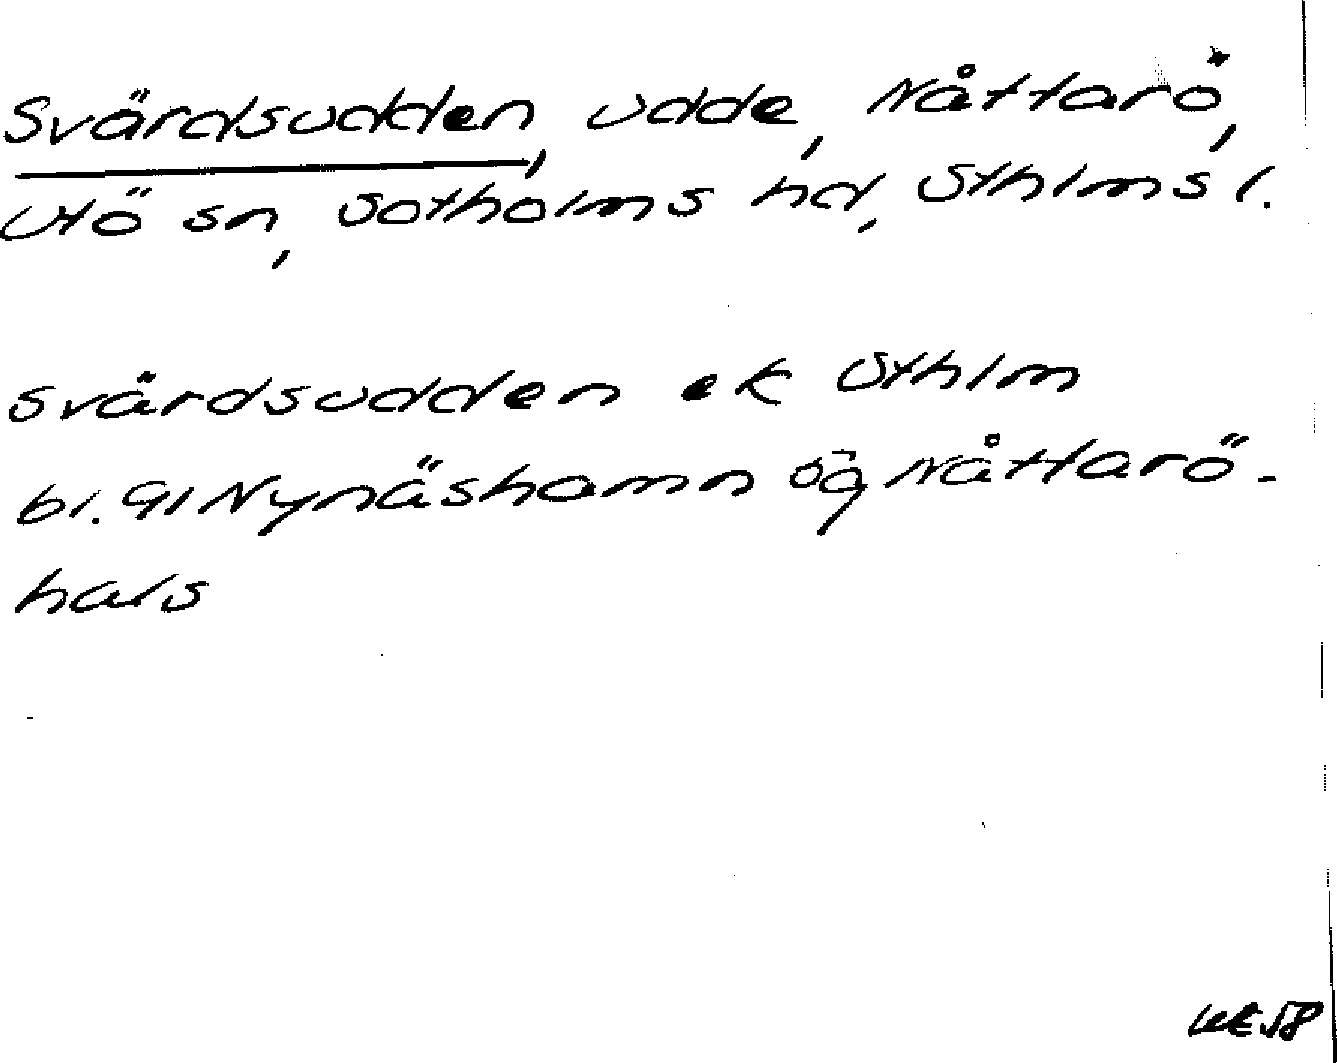 Svärdsudden, udde, Nåttarö,
Utö sn, Sotholms hd, Sthlms l.
Svärdsudden ek Sthlm
bl. 91 Nynäshamn ög Nåttarö-
hals